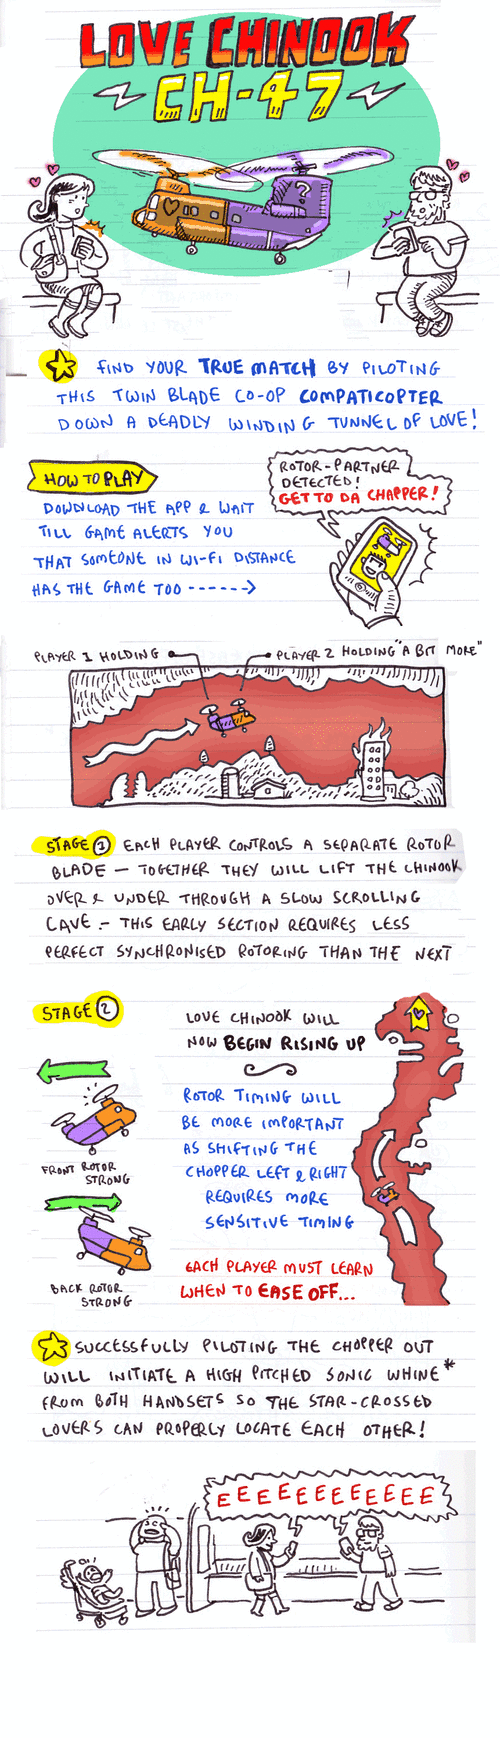 LOVE CHINOOK
CH-47
?
FIND YOUR TRUE MATCH BY PILOTING
THIS TWIN BLADE CO-OP COMPATICOPTER
DOWN A DEADLY WINDING TUNNEL OF LOVE!
HOW TO PLAY
DOWNLOAD THE APP & WAIT
TILL GAME ALERTS YOU
THAT SOMEONE IN WI-FI DISTANCE
HAS THE GAME TOO ------>
ROTOR-PARTNER
DETECTED!
GET TO DA CHAPPER!
PLAYER 1 HOLDING
PLAYER 2 HOLDING "A BIT MORE"
STAGE 1 EACH PLAYER CONTROLS A SEPARATE ROTOR
BLADE — TOGETHER THEY WILL LIFT THE CHINOOK
OVER & UNDER THROUGH A SLOW SCROLLING
CAVE.- THIS EARLY SECTION REQUIRES LESS
PERFECT SYNCHRONISED ROTORING THAN THE NEXT
STAGE 2
LOVE CHINOOK WILL
NOW BEGIN RISING UP
ROTOR TIMING WILL
BE MORE IMPORTANT
AS SHIFTING THE
CHOPPER LEFT & RIGHT
REQUIRES MORE
SENSITIVE TIMING
FRONT ROTOR
STRONG
BACK ROTOR
STRONG
EACH PLAYER MUST LEARN
WHEN TO EASE OFF...
SUCCESSFULLY PILOTING THE CHOPPER OUT
WILL INITIATE A HIGH PITCHED SONIC WHINE*
FROM BOTH HANDSETS SO THE STAR-CROSSED
LOVERS CAN PROPERLY LOCATE EACH OTHER!
EEEEEEEEEEE